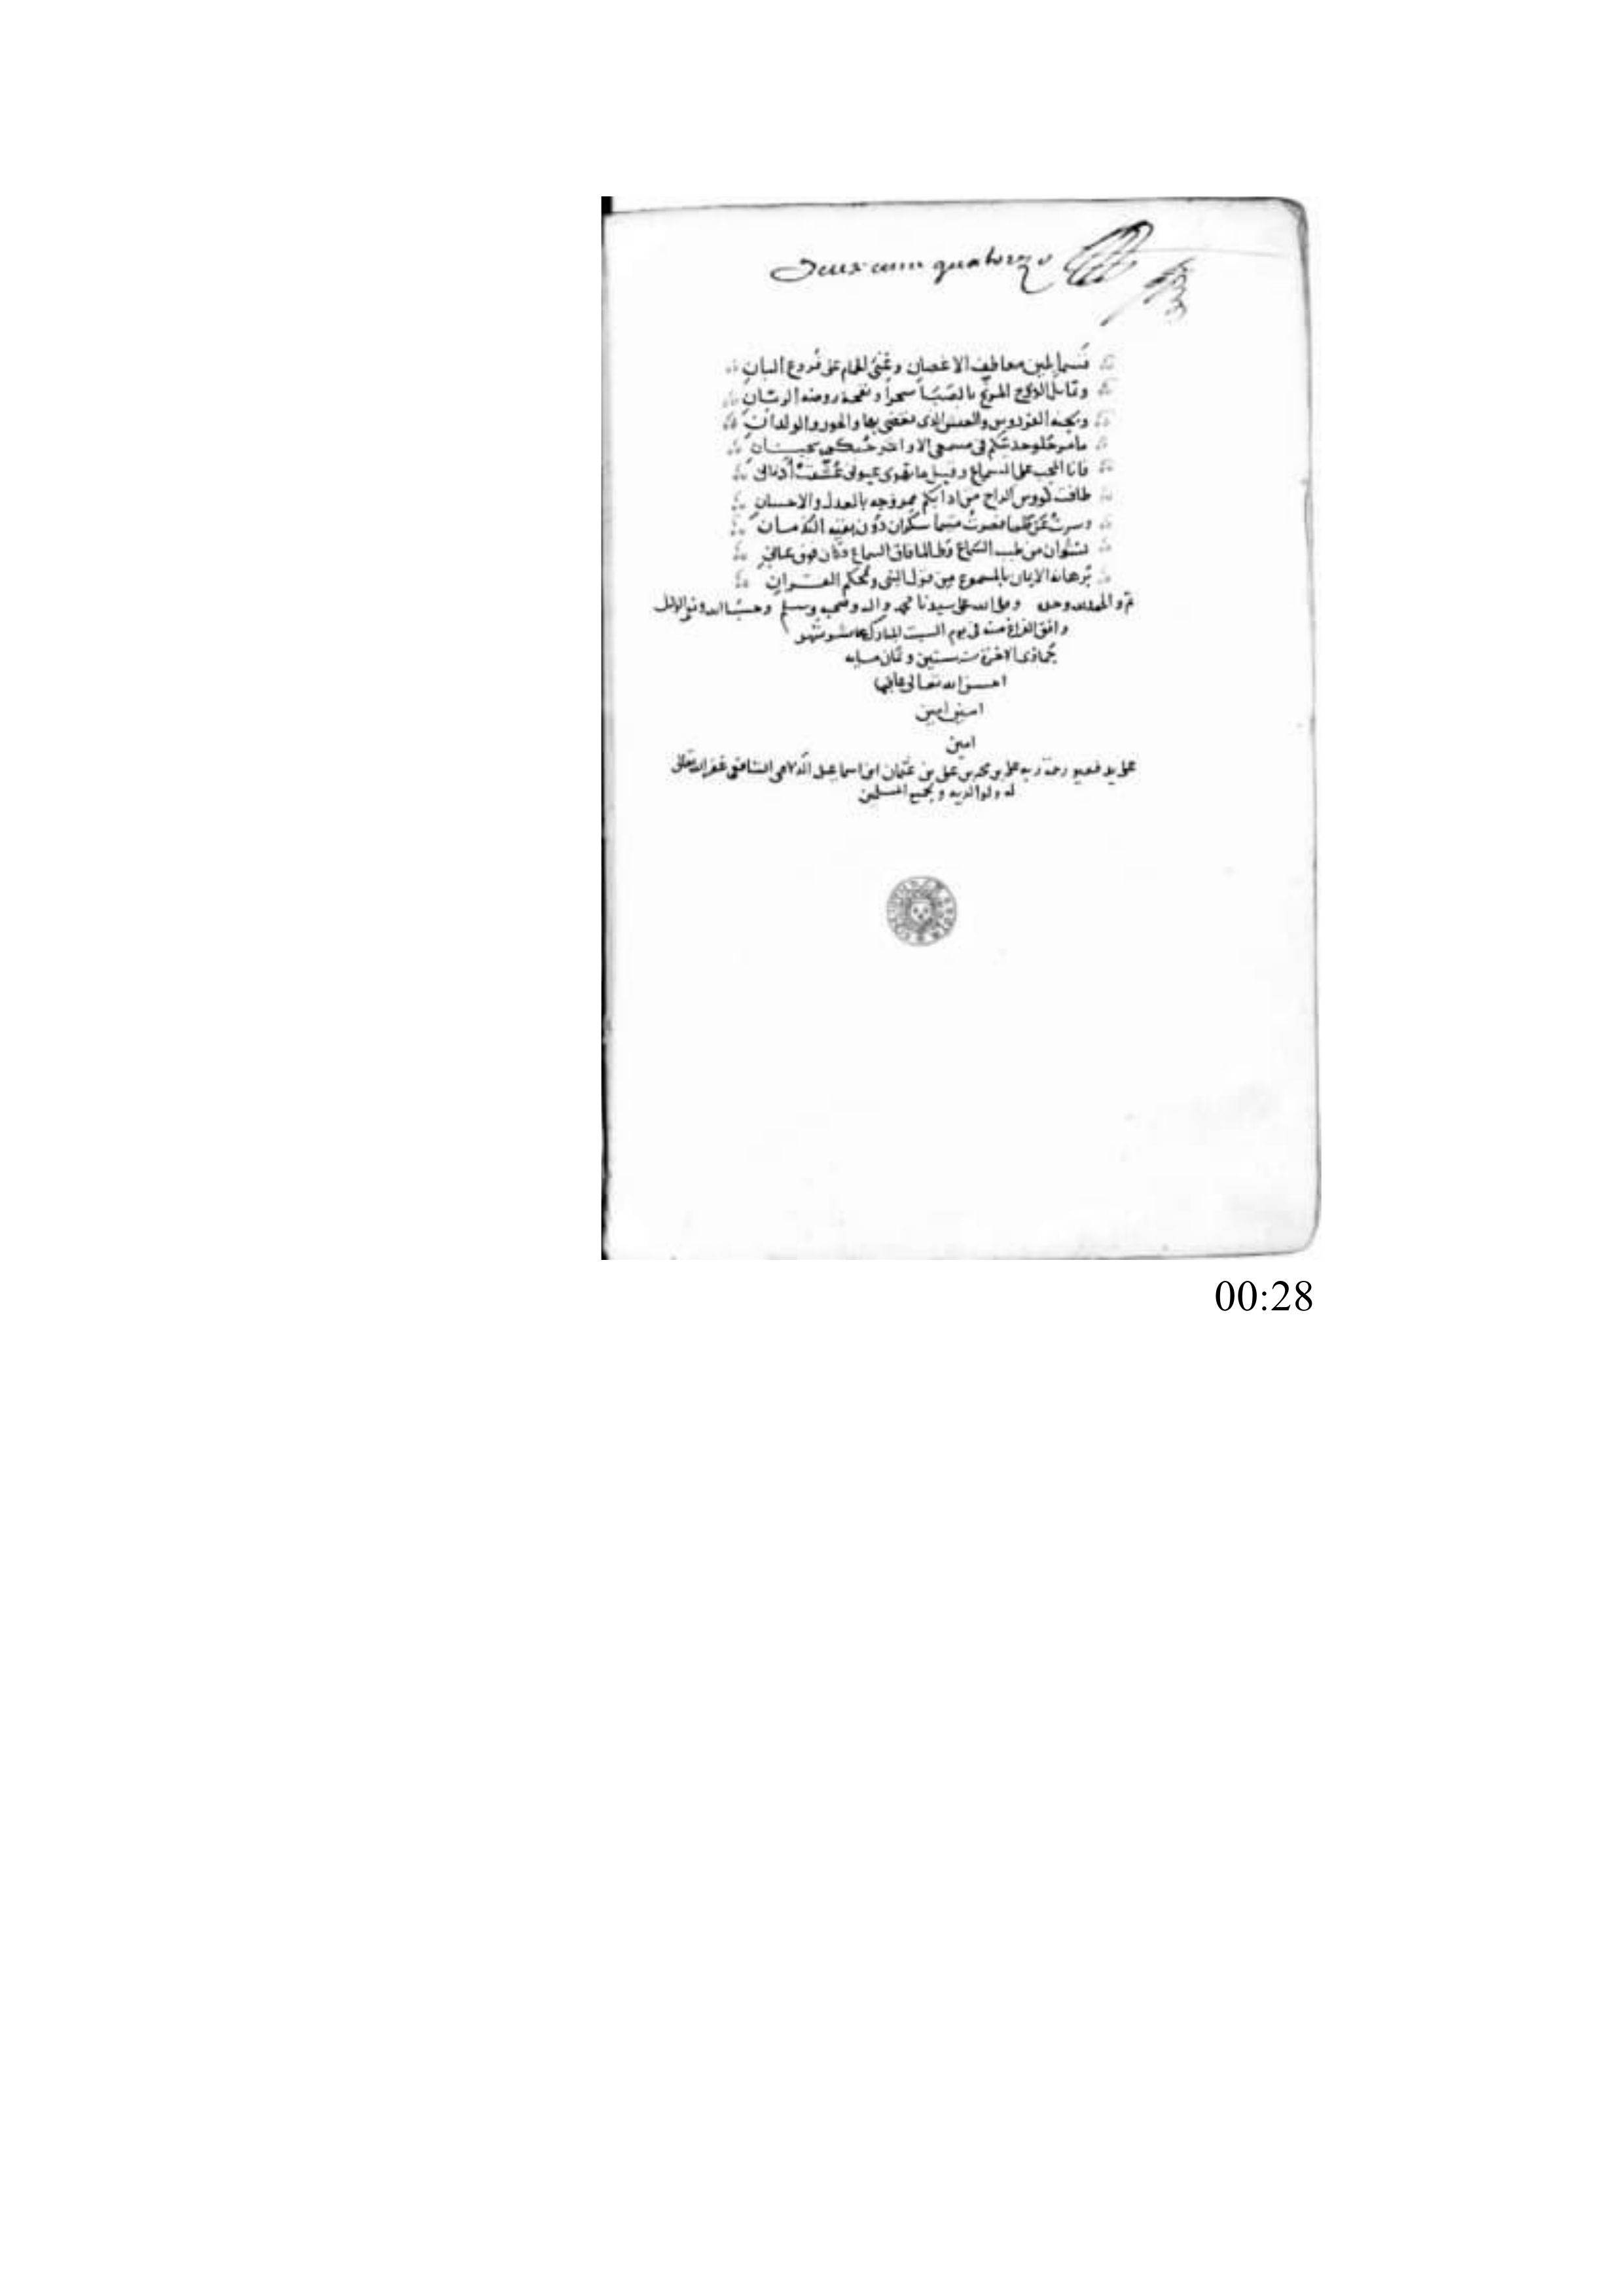 Deux cem quatorze
قسما بلين معاطف الاغصان وغنى الحمام على فروع البان
وتمايل الدوح المرنح بالصبا سحرا ونفحة روضه الريان
وبجنة الفردوس والعيش الذى نقضى بها والحور والولدان
ما مر حلو حديثكم فى مسمعى الا و
فانا المحب على السماع وقبل ما تهوى عيونى عشقت أذنانى
طافت كووس الراح من ادابكم ممزوجه بالعدل والاحسان
وسرت سكران دون بقية الندمان
نشوان من طيب السماع وطالما فاق السماع وكان فوق عيانى
برهانه الايمان بالمسموع من قول النبى ومحكم القران
تم والحمد لله وحده وصلى الله على سيدنا محمد واله وصحبه وسلم وحسبنا الله ونعم الوكيل
وافق الفراغ منه فى يوم السبت المبارك عاشر شهر
جمادى الاخرة ستين وثمان مايه
احسن الله تعالى عاقبتها
امين امين
امين
على يد فقير رحمة ربه على بن محمد بن على بن عثمان ابن اسماعيل الشافعى غفر الله تعالى
له ولوالديه ولجميع المسلمين
00:28